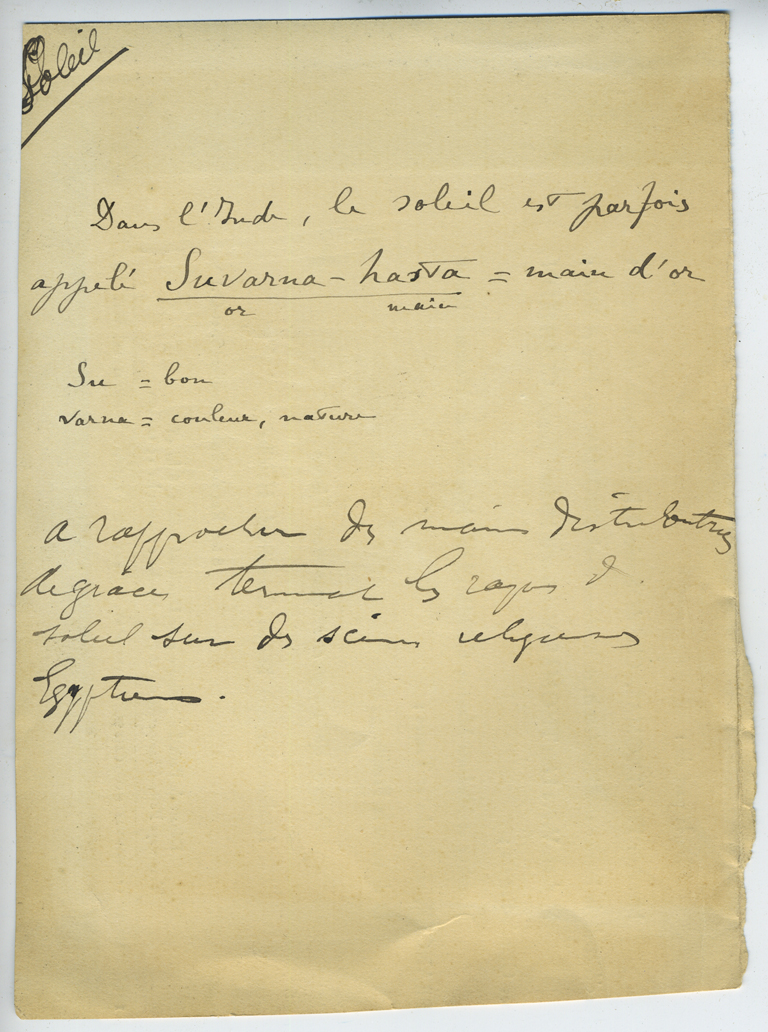 Soleil
Dans l'Inde, le soleil est parfois
appelé Suvarna-hasta = main d'or
or main
Su = bon
varna = couleur, nature
a rapprocher des mains distributrices
de grâces terminant les rayons de
soleil sur des scènes religieuses
Egyptiennes.